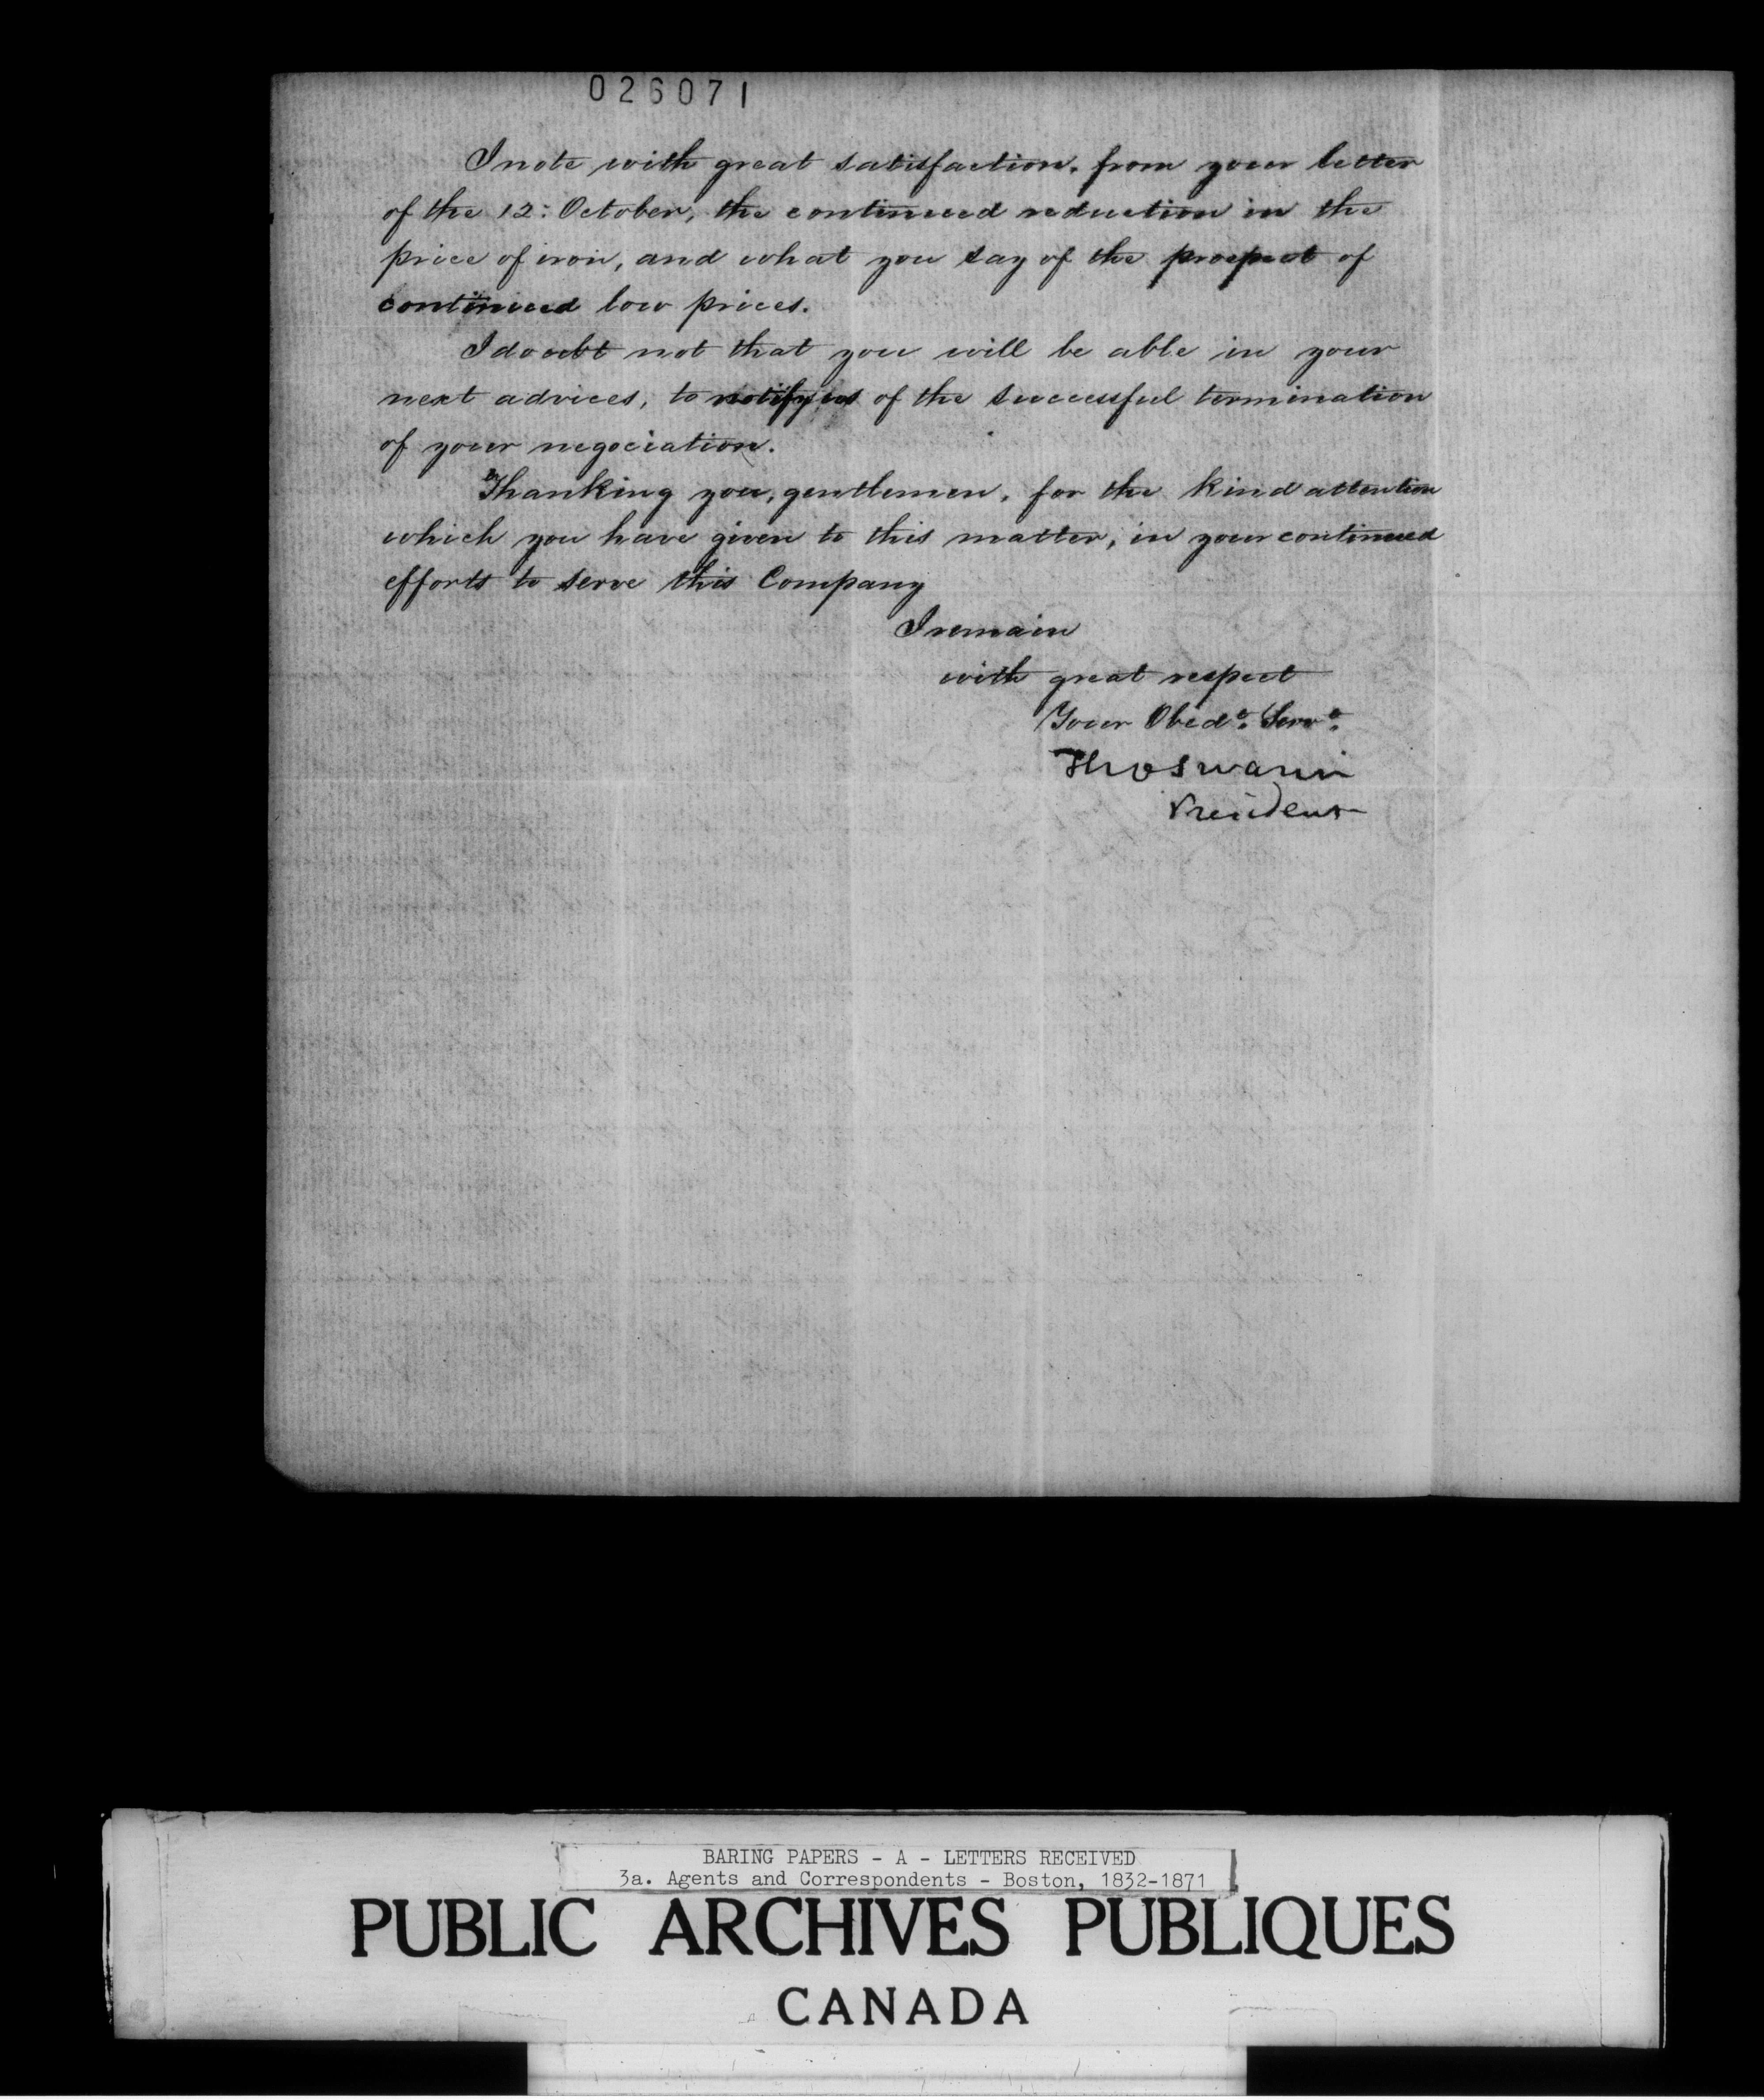 026071
I note with great satisfaction, from your letter
of the 12: October, the continued reduction in the
price of iron, and what you say of the prospect of
continued low prices.
I doubt not that you will be able in your
next advices, to notify us of the successful termination
of your negociation.
Thanking you, gentlemen, for the kind attention
which you have given to this matter, in your continued
efforts to serve this Company
I remain
with great respect
Your Obedt. Servt.
Tho Swann
President
BARING PAPERS - A - LETTERS RECEIVED
3a. Agents and Correspondents - Boston, 1832-1871
PUBLIC ARCHIVES PUBLIQUES
CANADA